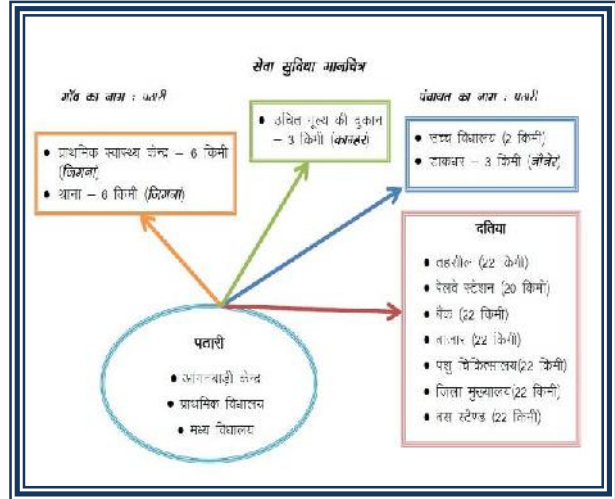 सेवा सुविधा मानचित्र
गाँव का नाम : पतारी
पंचायत का नाम : पतारी
• प्राथमिक स्वास्थ्य केन्द्र – 6 किमी
(जिगना)
• थाना – 6 किमी (जिगना)
• उचित मूल्य की दुकान
– 3 किमी (कान्हर)
• उच्च विद्यालय (2 किमी)
• डाकघर – 3 किमी (नौनेर)
दतिया
• तहसील (22 किमी)
• रेलवे स्टेशन (20 किमी)
• बैंक (22 किमी)
• बाजार (22 किमी)
• पशु चिकित्सालय(22 किमी)
• जिला मुख्यालय(22 किमी)
• बस स्टैण्ड (22 किमी)
पतारी
• आंगनबाड़ी केन्द्र
• प्राथमिक विद्यालय
• मध्य विद्यालय